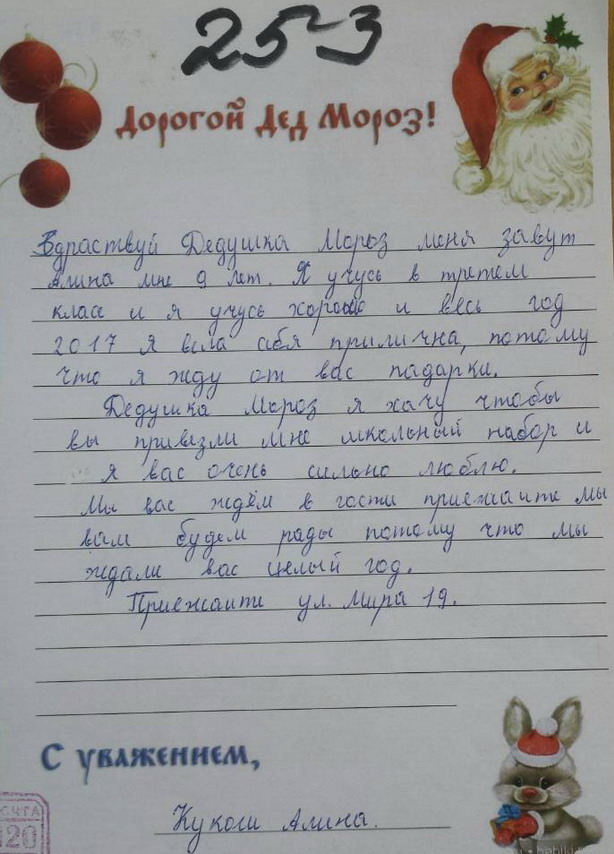 25-3
Дорогой Дед Мороз!
Здраствуй Дедушка Мороз меня завут
Алина мне 9 лет. Я учусь в третем
класе и я учусь хорошо и весь год
2017 я вела себя прилична, потому
что я жду от вас падарки.
Дедушка Мороз я хачу чтобы
вы привезли мне школьный набор и
я вас очень сильно люблю.
Мы вас ждём в гости приежаите мы
вам будем рады потому что мы
ждали вас целый год.
Приежаите ул. Мира 19.
С уважением,
Кукош Алина.
ОЧТА
20